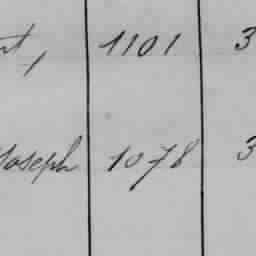 nt, 1101 3
Joseph 1078 3